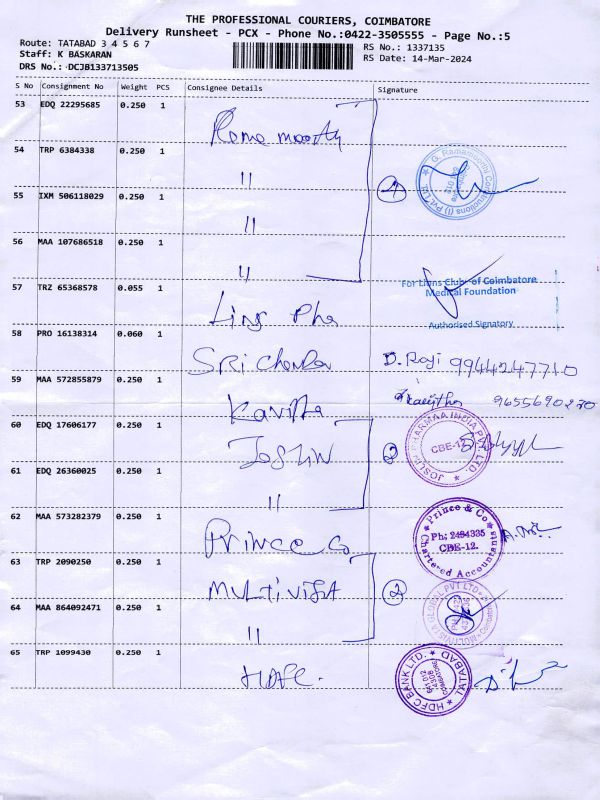 THE PROFESSIONAL COURIERS, COIMBATORE
Delivery Runsheet - PCX - Phone No.:0422-3505555 - Page No.:5
Route: TATABAD 3 4 5 6 7
RS No.: 1337135
Staff: K BASKARAN
RS Date: 14-Mar-2024
DRS No.: DCJB133713505
S No Consignment No Weight PCS Consignee Details Signature
53 EDQ 22295685 0.250 1
Rama moorthy
54 TRP 6384338 0.250 1
"
G. Ramamoorthi Constructions (I) Pvt Ltd
55 IXM 506118029 0.250 1
"
4
56 MAA 107686518 0.250 1
"
57 TRZ 65368578 0.055 1
For Lions Club of Coimbatore
Medical Foundation
Authorised Signatory
58 PRO 16138314 0.060 1
D. Raji 9944247710
59 MAA 572855879 0.250 1
9655690270
Kavitha
60 EDQ 17606177 0.250 1
Joslin
JOSLIN PHARMAA INDIA PVT. LTD.
CBE-12
2
61 EDQ 26360025 0.250 1
"
62 MAA 573282379 0.250 1
Prince & Co
Prince & Co
Ph; 2494335
CBE-12.
Chartered Accountants
63 TRP 2090250 0.250 1
MULTIVISTA
2
MULTIVISTA GLOBAL PVT LTD
64 MAA 864092471 0.250 1
"
65 TRP 1099430 0.250 1
HDFC.
HDFC BANK LTD.
TATABAD
COIMBATORE